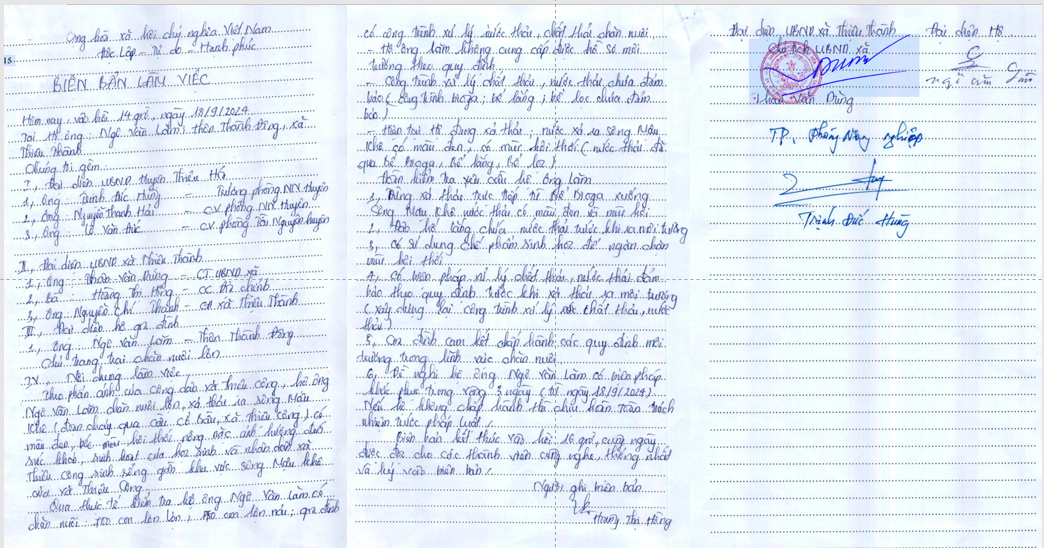 Cộng hòa xã hội chủ nghĩa Việt Nam
Độc Lập - Tự do - Hạnh phúc
15
BIÊN BẢN LÀM VIỆC
Hôm nay, vào hồi 14 giờ, ngày 18/9/2024
Tại hộ ông: Ngô Văn Lâm, thôn Thành Đông, xã
Thiệu Thành
Chúng tôi gồm:
I, Đại diện UBND huyện Thiệu Hóa
1, Ông Trịnh Đức Hùng - Trưởng phòng NN huyện
2, Ông Nguyễn Thanh Hải - CV. phòng NN huyện
3, Ông Lê Văn Đức - CV phòng Tài Nguyên huyện
II, Đại diện UBND xã Thiệu Thành
1, Ông: Trần Văn Dũng - CT UBND xã
2, Bà Hoàng Thị Hồng - CC Địa chính
3, Ông Nguyễn Chí Thành - CA xã Thiệu Thành
III, Đại diện hộ gia đình
1, Ông Ngô Văn Lâm - Thôn Thành Đông
Chủ trang trại chăn nuôi lợn
IV, Nội dung làm việc,
Theo phản ánh của công dân xã Thiệu Công, hộ ông
Ngô Văn Lâm chăn nuôi lợn, xả thải ra sông Mậu
Khê (đoạn chảy qua cầu cổ Bầu, xã Thiệu Công) có
màu đen, mùi hôi thối nồng nặc ảnh hưởng đến
sức khỏe, sinh hoạt của học sinh và nhân dân xã
Thiệu Công sinh sống gần khu vực sông Mậu Khê
của xã Thiệu Công.
Qua thực tế kiểm tra hộ ông Ngô Văn Lâm có
chăn nuôi con lợn lớn, con lợn nái; gia đình
có công trình xử lý nước thải, chất thải chăn nuôi.
- Hộ ông Lâm không cung cấp được hồ sơ môi
trường theo quy định
- Công trình xử lý chất thải, nước thải chưa đảm
bảo (công trình Bioga; bể lắng; bể lọc chưa đảm
bảo)
- Hiện tại hộ đang xả thải; nước xả ra sông Mậu
Khê có màu đen, có mùi hôi thối (nước thải đã
qua bể Bioga, bể lắng, bể lọc)
Đoàn kiểm tra yêu cầu hộ ông Lâm
1, Dừng xả thải trực tiếp từ bể Bioga xuống
Sông Mậu Khê nước thải có màu đen và mùi hôi
2, hồ lắng chứa nước thải trước khi ra môi trường
3, có sử dụng chế phẩm sinh học để ngăn chặn
mùi hôi thối
4, Có biện pháp xử lý chất thải, nước thải đảm
bảo theo quy định trước khi xả thải ra môi trường
(xây dựng lại công trình xử lý chất thải, nước
thải)
5, Gia đình cam kết chấp hành các quy định môi
trường trong lĩnh vực chăn nuôi
6, Đề nghị hộ ông Ngô Văn Lâm có biện pháp
khắc phục trong vòng 3 ngày (từ ngày 18/9/2024)
Nếu hộ không chấp hành thì chịu hoàn toàn trách
nhiệm trước pháp luật./.
Biên bản kết thúc vào hồi 16 giờ, cùng ngày
được đọc cho các thành viên cùng nghe, thống nhất
và ký vào biên bản./.
Người ghi biên bản
Hoàng Thị Hồng
Đại diện UBND xã Thiệu Thành Đại diện Hộ
Chủ tịch UBND xã
Văn Dũng
TP. Phòng Nông nghiệp
Trịnh Đức Hùng